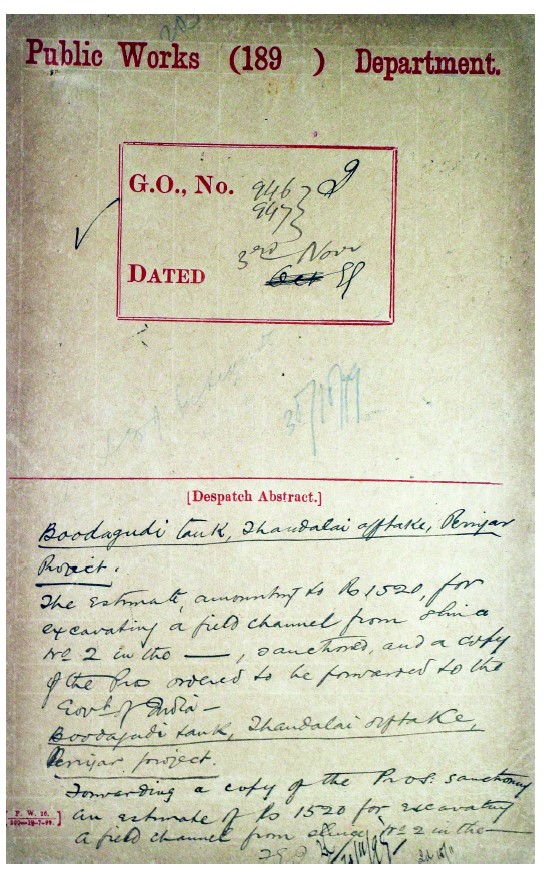 203
Public Works (189 ) Department.
G.O., No. 946 J
947
3rd Novr
DATED Oct 99
30/10/99
[Despatch Abstract.]
Boodagudi tank, Thandalai offtake, Periyar
Project.
The estimate, amounting to Rs 1520, for
excavating a field channel from sluice
No 2 in the —, sanctioned, and a copy
of the Pros ordered to be forwarded to the
Govt of India —
Boodagudi tank, Thandalai offtake,
Periyar project.
Forwarding a copy of the Pros. sanctioning
an estimate of Rs 1520 for excavating
a field channel from sluice No 2 in the —
P. W. 26.